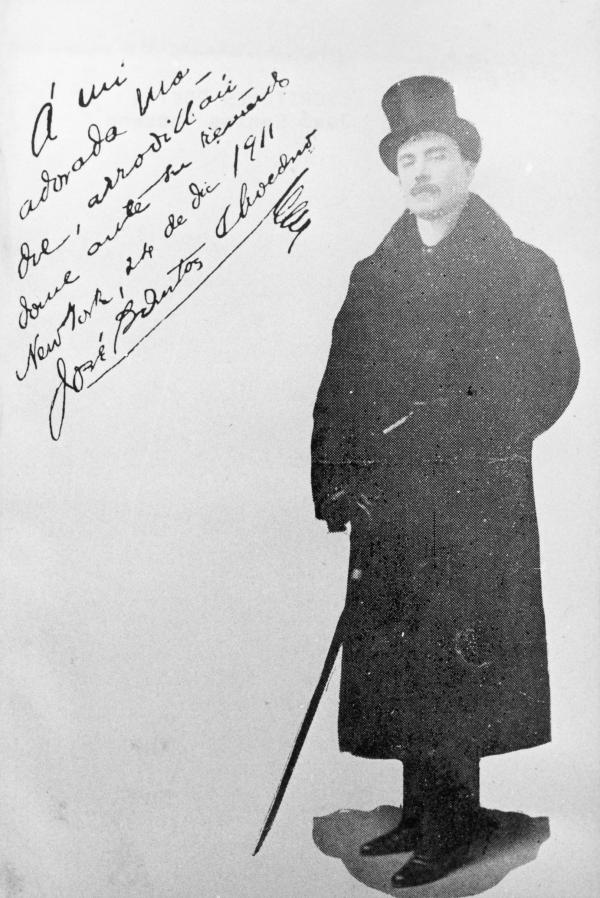 Á mi
adorada ma-
dre, arrodillán
dome ante su
New York, 24 de dic 1911
José Santos Chocano